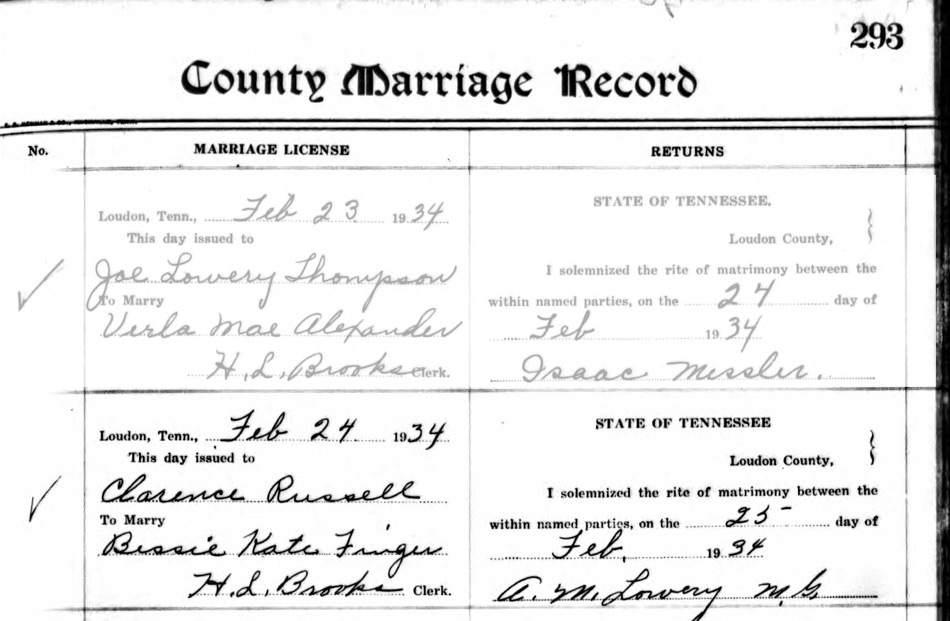 293
County Marriage Record
No. MARRIAGE LICENSE RETURNS
Loudon, Tenn., Feb 23 1934
This day issued to
Joe Lowery Thompson
To Marry
Verla Mae Alexander
H. L. Brooks Clerk.
STATE OF TENNESSEE.
Loudon County,
I solemnized the rite of matrimony between the
within named parties, on the 24 day of
Feb 1934
Isaac Messler.
Loudon, Tenn., Feb 24 1934
This day issued to
Clarence Russell
To Marry
Bessie Kate Finger
H. L. Brooks Clerk.
STATE OF TENNESSEE
Loudon County,
I solemnized the rite of matrimony between the
within named parties, on the 25 day of
Feb, 1934
A. M. Lowery M. G.